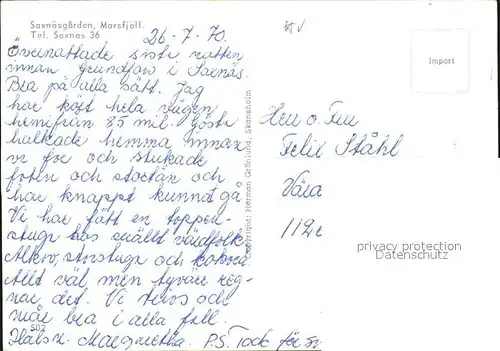 Saxnäsgården, Marsfjäll.
Tel. Saxnäs 36
26-7-70.
Övernattade sista natten
innan Grundfors i Saxnäs.
Bra på alla sätt. Jag
har kört hela vägen
hemifrån 85 mil. Gösta
halkade hemma innan
vi for och stukade
foten och stortån och
har knappt kunnat gå
Vi har fått en toppen-
stuga hos snällt värdfolk
Alkov, storstuga och kokvrå
Allt väl men tyvärr reg-
nar det. Vi trivs och
mår bra i alla fall.
502
Hälsn. Margaretha. P.S. Tack för
Copyright: Herman Grönlund, Skansholm
Import
Herr o. Fru
Felix Ståhl
privacy protection
Datenschutz